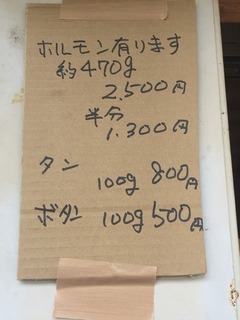 ホルモン有ります
約470g
2.500円
半分
1.300円
タン
100g 800円
ボタン 100g 500円